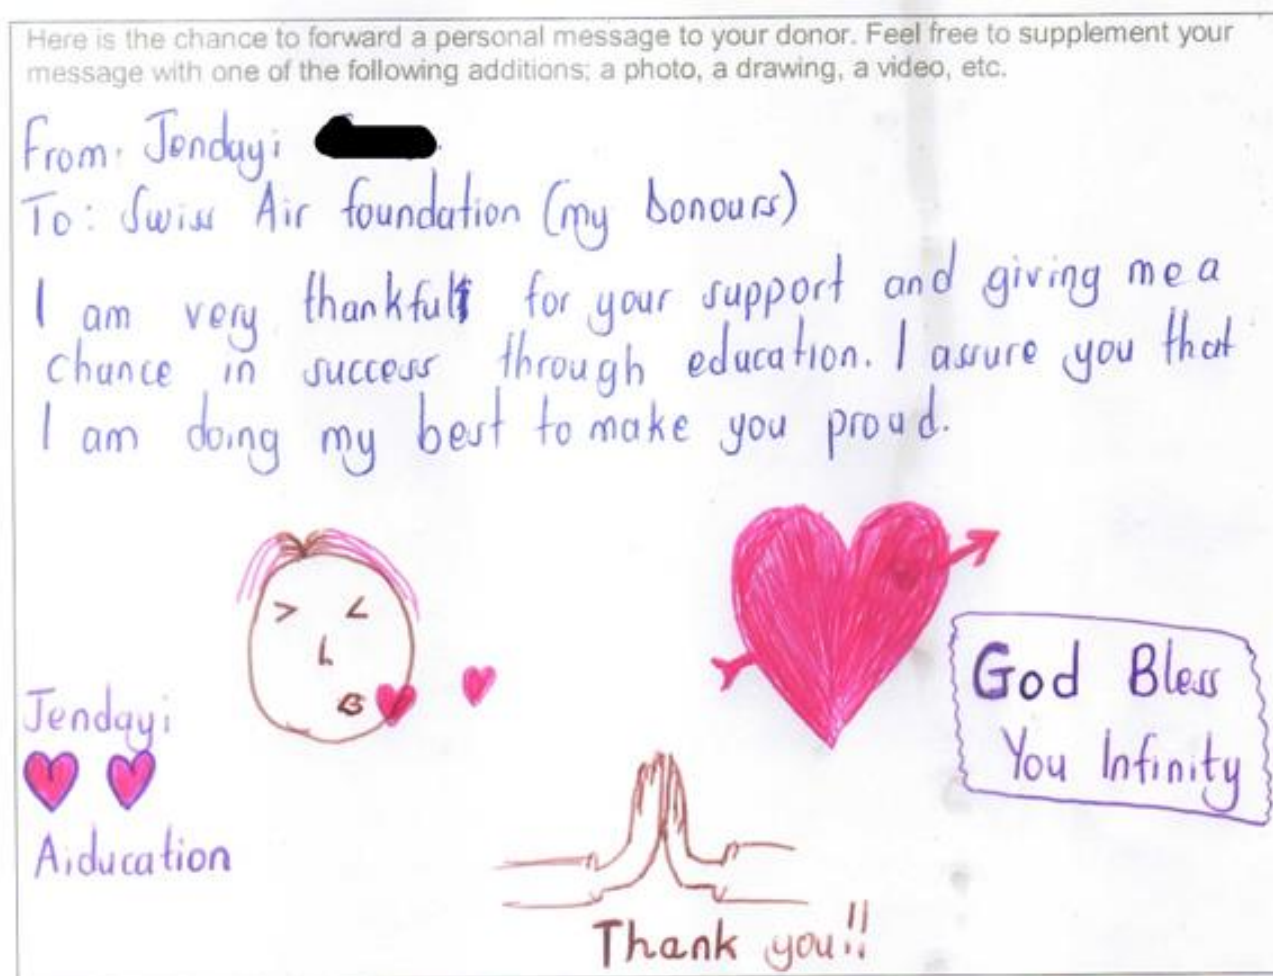 Here is the chance to forward a personal message to your donor. Feel free to supplement your
message with one of the following additions: a photo, a drawing, a video, etc.
From: Jendayi
To: Swiss Air foundation (my Donours)
I am very thankful for your support and giving me a
chance in success through education. I assure you that
I am doing my best to make you proud.
Jendayi
Aiducation
God Bless
You Infinity
Thank you!!